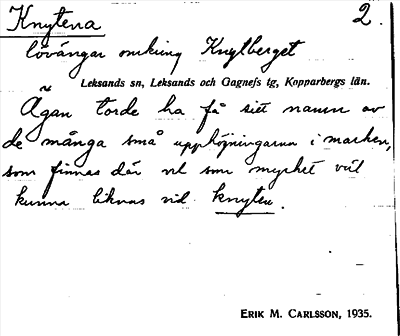 Knytena 2.
lövängar omkring Knylberget
Leksands sn, Leksands och Gagnefs tg, Kopparbergs län.
Ägan torde ha få sitt namn av
de många små upphöjningarna i marken,
som finnas där och som mycket väl
kunna liknas vid knyten.
ERIK M. CARLSSON, 1935.